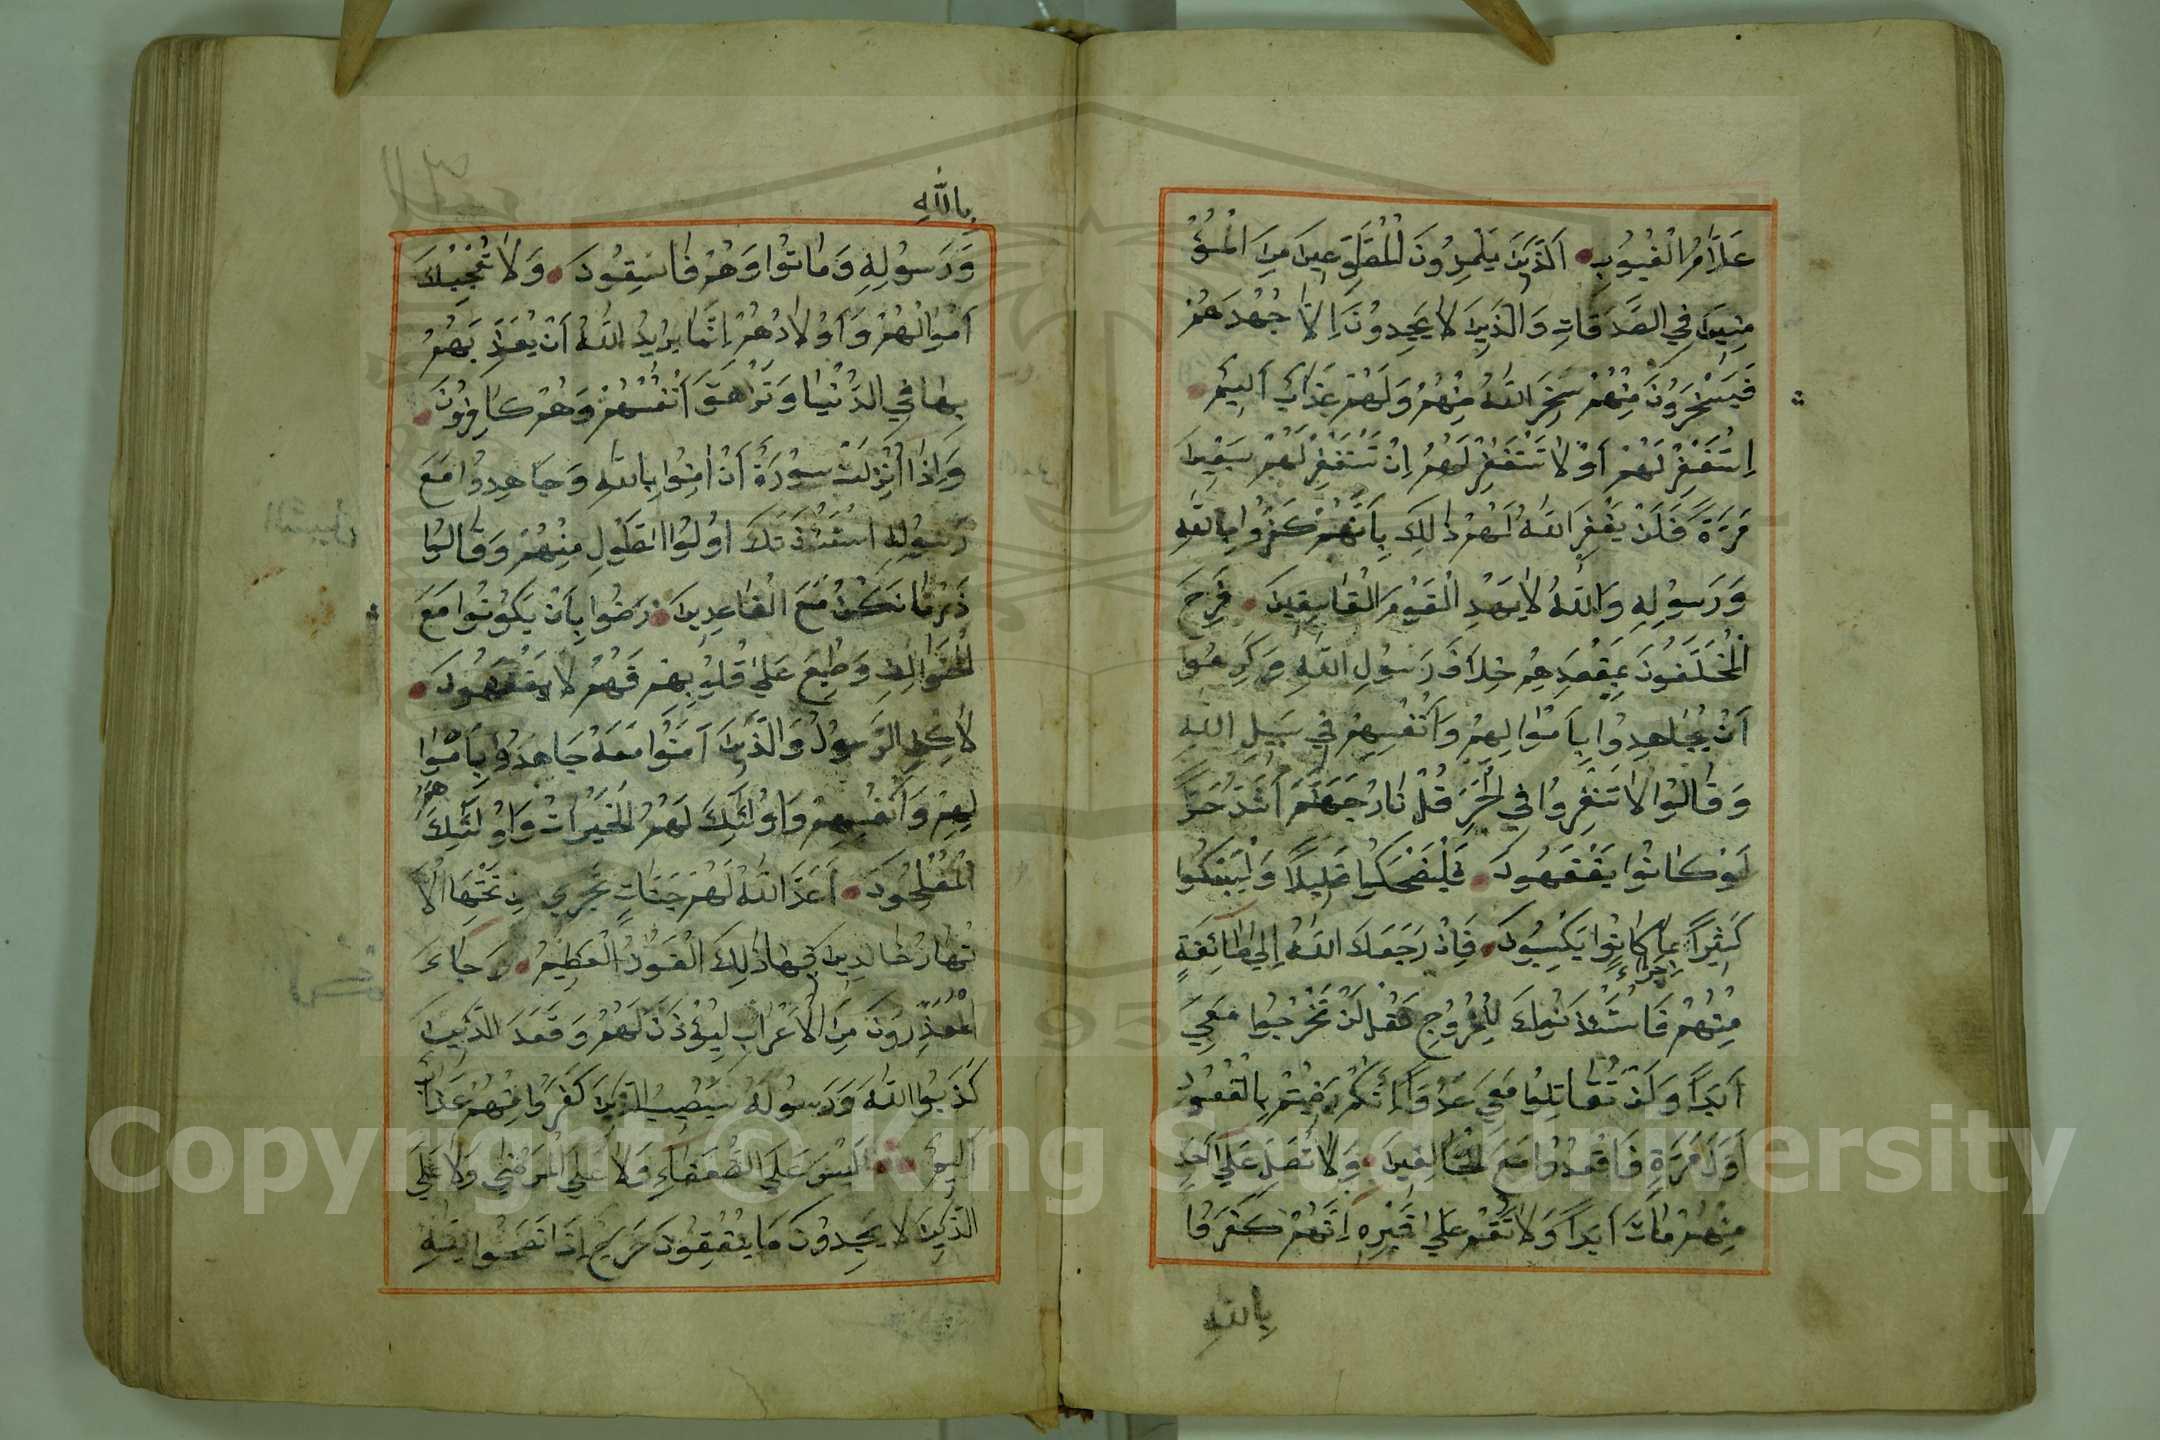 عَلَّامُ الْغُيُوبِ الَّذِينَ يَلْمِزُونَ الْمُطَّوِّعِينَ مِنَ الْمُؤْ
مِنِينَ فِي الصَّدَقَاتِ وَالَّذِينَ لَا يَجِدُونَ اِلَّا جُهْدَهُمْ
فَيَسْخَرُونَ مِنْهُمْ سَخِرَ اللّٰهُ مِنْهُمْ وَلَهُمْ عَذَابٌ اَلِيمٌ
اِسْتَغْفِرْ لَهُمْ اَوْ لَا تَسْتَغْفِرْ لَهُمْ اِنْ تَسْتَغْفِرْ لَهُمْ سَبْعِينَ
مَرَّةً فَلَنْ يَغْفِرَ اللّٰهُ لَهُمْ ذٰلِكَ بِاَنَّهُمْ كَفَرُوا بِاللّٰهِ
وَرَسُولِهِ وَاللّٰهُ لَا يَهْدِ الْقَوْمَ الْفَاسِقِينَ فَرِحَ
الْمُخَلَّفُونَ بِمَقْعَدِهِمْ خِلَافَ رَسُولِ اللّٰهِ وَكَرِهُوا
اَنْ يُجَاهِدُوا بِاَمْوَالِهِمْ وَاَنْفُسِهِمْ فِي سَبِيلِ اللّٰهِ
وَقَالُوا لَا تَنْفِرُوا فِي الْحَرِّ قُلْ نَارُ جَهَنَّمَ اَشَدُّ حَرًّا
لَوْ كَانُوا يَفْقَهُونَ فَلْيَضْحَكُوا قَلِيلًا وَلْيَبْكُوا
كَثِيرًا جَزَاءً بِمَا كَانُوا يَكْسِبُونَ فَاِنْ رَجَعَكَ اللّٰهُ اِلَى طَائِفَةٍ
مِنْهُمْ فَاسْتَئْذَنُوكَ لِلْخُرُوجِ فَقُلْ لَنْ تَخْرُجُوا مَعِيَ
اَبَدًا وَلَنْ تُقَاتِلُوا مَعِيَ عَدُوًّا اِنَّكُمْ رَضِيتُمْ بِالْقُعُودِ
اَوَّلَ مَرَّةٍ فَاقْعُدُوا مَعَ الْخَالِفِينَ وَلَا تُصَلِّ عَلَى اَحَدٍ
مِنْهُمْ مَاتَ اَبَدًا وَلَا تَقُمْ عَلَى قَبْرِهِ اِنَّهُمْ كَفَرُوا
بِاللّٰهِ
بِاللّٰهِ
وَرَسُولِهِ وَمَاتُوا وَهُمْ فَاسِقُونَ وَلَا تُعْجِبْكَ
اَمْوَالُهُمْ وَاَوْلَادُهُمْ اِنَّمَا يُرِيدُ اللّٰهُ اَنْ يُعَذِّبَهُمْ
بِهَا فِي الدُّنْيَا وَتَزْهَقَ اَنْفُسُهُمْ وَهُمْ كَافِرُونَ
وَاِذَا اُنْزِلَتْ سُورَةٌ اَنْ اٰمِنُوا بِاللّٰهِ وَجَاهِدُوا مَعَ
رَسُولِهِ اسْتَئْذَنَكَ اُولُوا الطَّوْلِ مِنْهُمْ وَقَالُوا
ذَرْنَا نَكُنْ مَعَ الْقَاعِدِينَ رَضُوا بِاَنْ يَكُونُوا مَعَ
الْخَوَالِفِ وَطُبِعَ عَلَى قُلُوبِهِمْ فَهُمْ لَا يَفْقَهُونَ
لٰكِنِ الرَّسُولُ وَالَّذِينَ اٰمَنُوا مَعَهُ جَاهَدُوا بِاَمْوَا
لِهِمْ وَاَنْفُسِهِمْ وَاُولٰئِكَ لَهُمُ الْخَيْرَاتُ وَاُولٰئِكَ هُمُ
الْمُفْلِحُونَ اَعَدَّ اللّٰهُ لَهُمْ جَنَّاتٍ تَجْرِي مِنْ تَحْتِهَا الْاَ
نْهَارُ خَالِدِينَ فِيهَا ذٰلِكَ الْفَوْزُ الْعَظِيمُ وَجَاءَ
الْمُعَذِّرُونَ مِنَ الْاَعْرَابِ لِيُؤْذَنَ لَهُمْ وَقَعَدَ الَّذِينَ
كَذَبُوا اللّٰهَ وَرَسُولَهُ سَيُصِيبُ الَّذِينَ كَفَرُوا مِنْهُمْ عَذَابٌ
اَلِيمٌ لَيْسَ عَلَى الضُّعَفَاءِ وَلَا عَلَى الْمَرْضَى وَلَا عَلَى
الَّذِينَ لَا يَجِدُونَ مَا يُنْفِقُونَ حَرَجٌ اِذَا نَصَحُوا لِلّٰهِ
Copyright © King Saud University